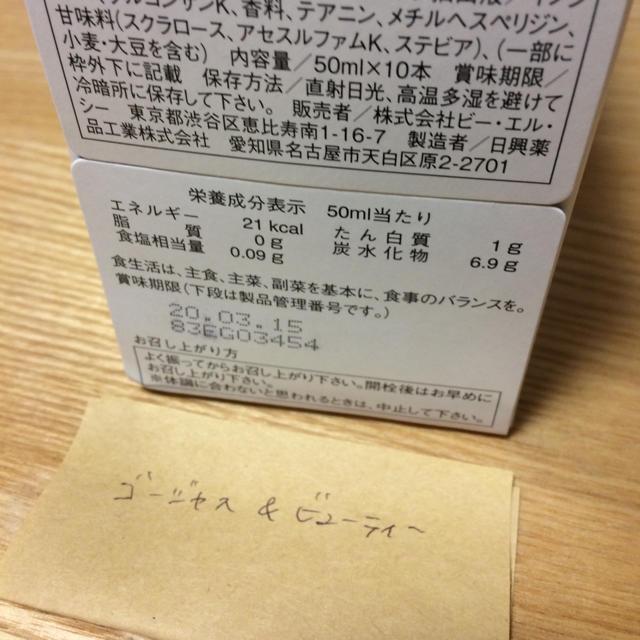 ルコンサンK、香料、テアニン、メチルヘスペリジン、
甘味料(スクラロース、アセスルファムK、ステビア)、(一部に
小麦・大豆を含む) 内容量/50ml×10本 賞味期限/
枠外下に記載 保存方法/直射日光、高温多湿を避けて
冷暗所に保存して下さい。 販売者/株式会社ビー・エル・
シー 東京都渋谷区恵比寿南1-16-7 製造者/日興薬
品工業株式会社 愛知県名古屋市天白区原2-2701
栄養成分表示 50ml当たり
エネルギー 21kcal たん白質 1g
脂質 0g 炭水化物 6.9g
食塩相当量 0.09g
食生活は、主食、主菜、副菜を基本に、食事のバランスを。
賞味期限(下段は製品管理番号です。)
20.03.15
83EG03454
お召し上がり方
よく振ってからお召し上がり下さい。開栓後はお早めに
お召し上がり下さい。
※体調に合わないと思われるときは、中止して下さい。
ゴージャス & ビューティー